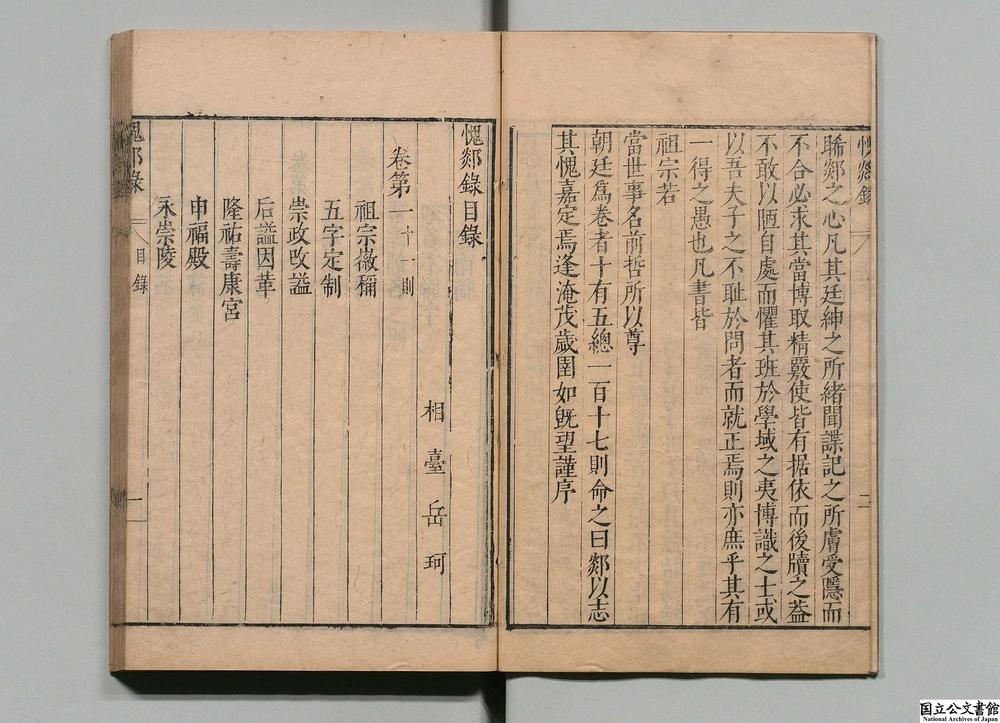 愧郯錄
二
睎郯之心凡其廷紳之所緒聞諜記之所膚受隱而
不合必求其當博取精覈使皆有据依而後牘之葢
不敢以陋自處而懼其班於學域之夷博識之士或
以吾夫子之不耻於問者而就正焉則亦庶乎其有
一得之愚也凡書皆
祖宗若
當世事名前哲所以尊
朝廷爲卷者十有五總一百十七則命之曰郯以志
其愧嘉定焉逢淹茂歲圉如旣望謹序
愧郯錄目錄
相臺岳珂
卷第一十一則
祖宗徽稱
五字定制
崇政改謚
后謚因革
隆祐壽康宮
申福殿
永崇陵
愧郯錄
目錄
一
国立公文書館
National Archives of Japan